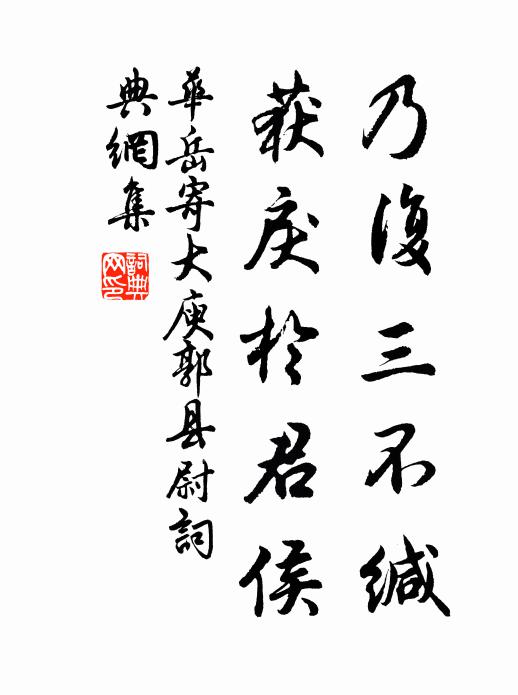 乃復三不緘
獲戾於君侯
華岳寄大庾郭县尉詞
典網集
詞典網印